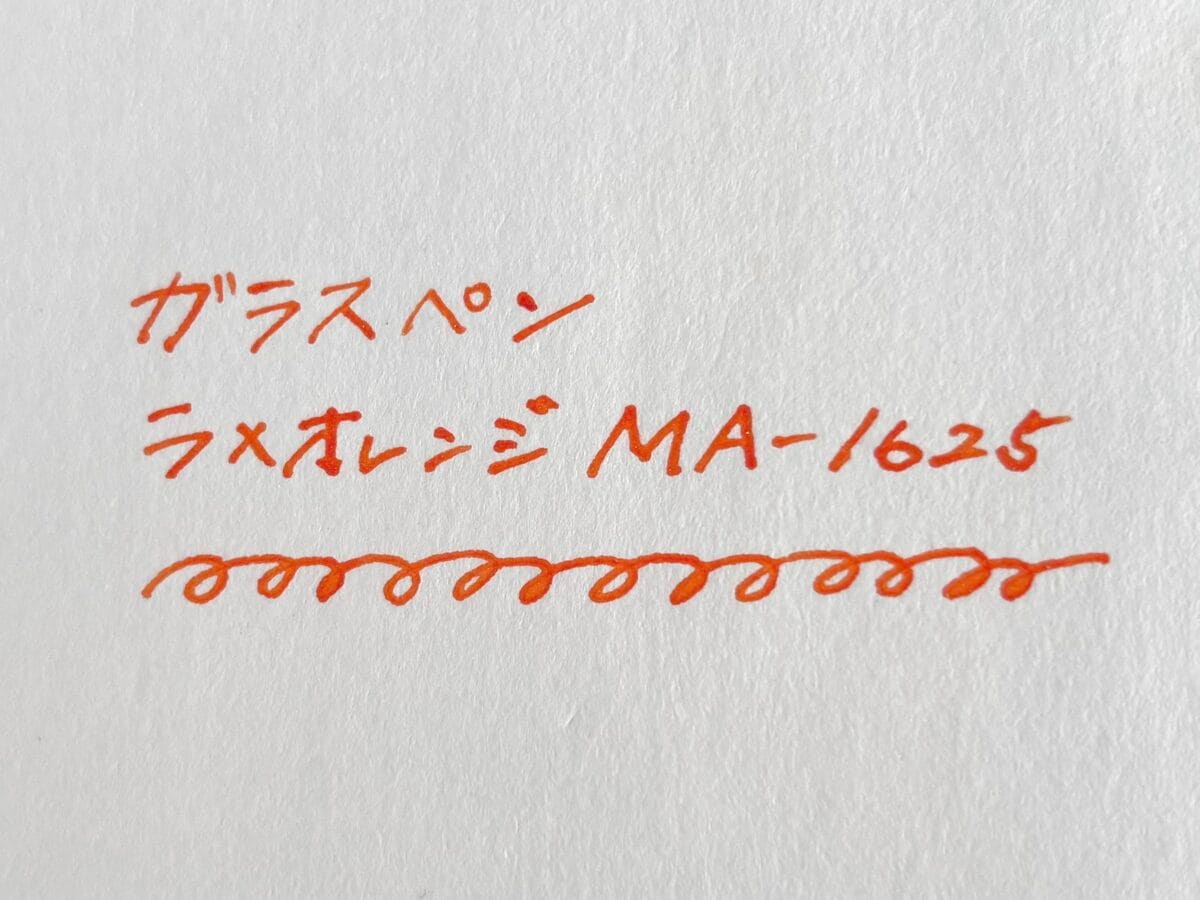 ガラスペン
ラメオレンジ MA-1625